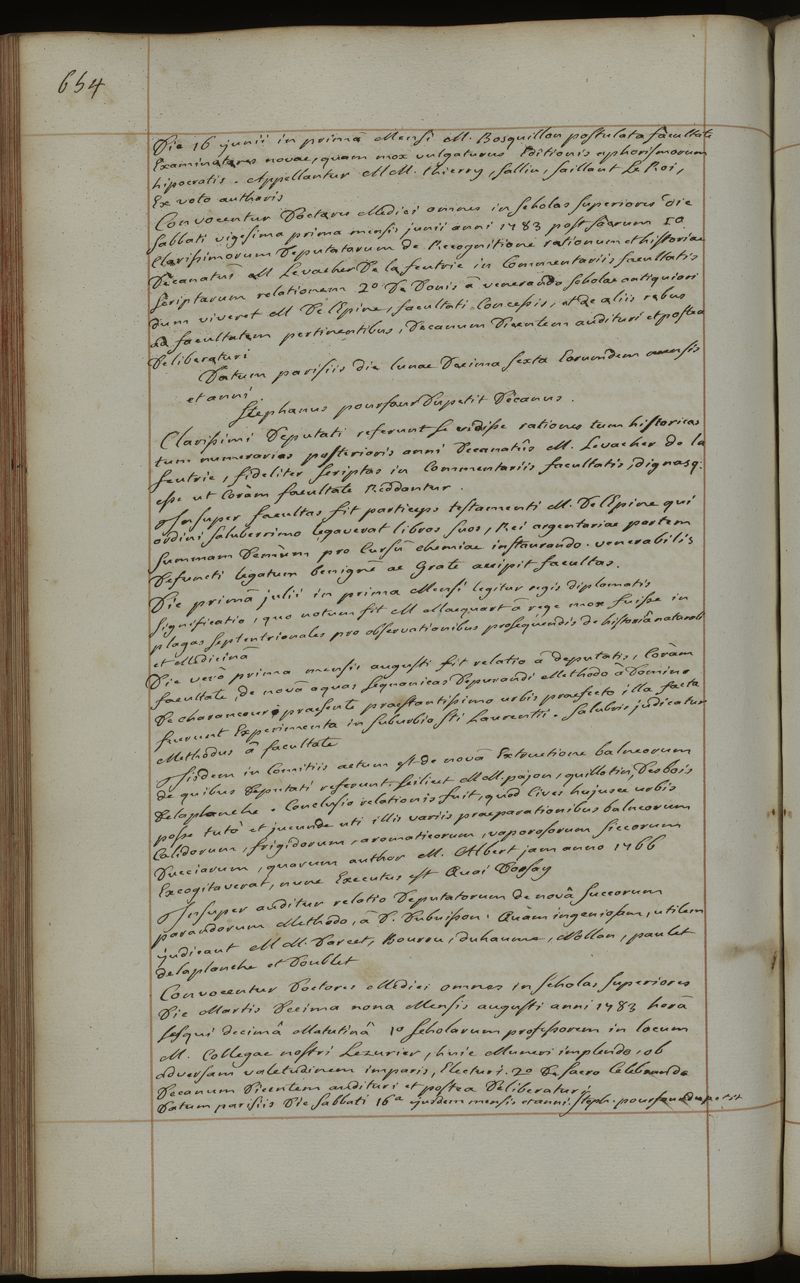 654
Die 16 junii in primâ Mensi M. Bosquillon postulata facultate
Examinatores novae, quam mox vulgaturus Editionis aphorismorum
hipocratis. Appellantur MM. thierry, sallin, saillant Le Roi,
Ex voto autharis
Convocentur Doctores Medici omnes in scholas superiores die
sabbati vigesima prima mensis junii anni 1783 post sacrum 1o
Clarissimorum Deputatorum de Recognitione rationum et historiae
Decanatus M Levacher De la feutrie in Commentariis facultatis
scriptarum relationem 2o De Donis à venerando scholae antiquiori
dum viveret M De l'Epine, facultati Concessis, et de aliis rebus
ad facultatem pertinentibus, Decanum Dicentem audituri et postea
Deliberaturi
Datum parisiis die lunae Decima sexta Eorumdem mensis
et anni
Stephanus pourfour Dupetit Decanus.
Clarissimi Deputati referunt se vidisse rationes tum historicas
tum numerarias posterioris anni Decanatûs M. Levacher de la
feutrie, fideliter scriptas in Commentariis facultatis, dignasq.
esse ut Coràm facultate Reddantur.
Insuper facultas fit particeps testamenti M. De l'Epine qui
ordini saluberrimo legaverat libros suos, Rei argentariae partem
summam Demùm pro Cursû chemiae instaurando. venerabilis
Defuncti legatum benignè ac Gratè accipit facultas.
Die primâ julii in prima Mensi legitur regis diplomatis
significatio, quo notum fit M Macquart à rege mox fuisse in
plagas septentrionales pro observationibus prosequendis de historiâ naturali
et Medicinâ
Die verò prima mensis augusti fit relatio à deputatis, Coràm
facultate, de novâ aquas sequanicas Depurandi Methodo à Domino
De charancourt praesente praestantissimo urbis praefecto illa facta
fuerunt Experimenta in suburbio sti Laurentii. salubris judicatur
Methodus à facultate
Iisdem in Comitiis actum est de novâ Extructione balneorum
de quibus Deputati referunt, scilicet MM. pajon, guillotin, Desbois
Delaplanche. Conclusio relationis fuit, quod Cives hujusce urbis
posse tutò et jucunde uti illis variis praeparationibus balneorum
Calidorum, frigidorum, aromaticorum, vaporosorum siccorum
Dueciarum, quorum author M. Albert jam anno 1766
Excogitaverat, nunc Executus est Quai Dorsay
Insuper auditur relatio Deputatorum de novâ succorum
parandorum Methodo, à D. Dubuisson. Quàm ingeniosam, utilem
judicant MM. Darcet, Bourru, Duhaume, Nollan, paulet
delaplanche et Doublet
Convocentur Doctores Medici omnes in scholas superiores
Die Martis Decima nona Mensis augusti anni 1783 horâ
sesqui decimâ Matutinâ 1o scholarum professorem in locum
M. Collegae nostri Lezurier, huic Muneri implendo, ob
adversam valetudinem imparis, Electuri. 2o De sacro Celebrando
Decanum Dicentem audituri et postea Deliberaturi
Datum parisiis Die sabbati 16a ejusdem mensis et anni. steph. pourfour dupetit